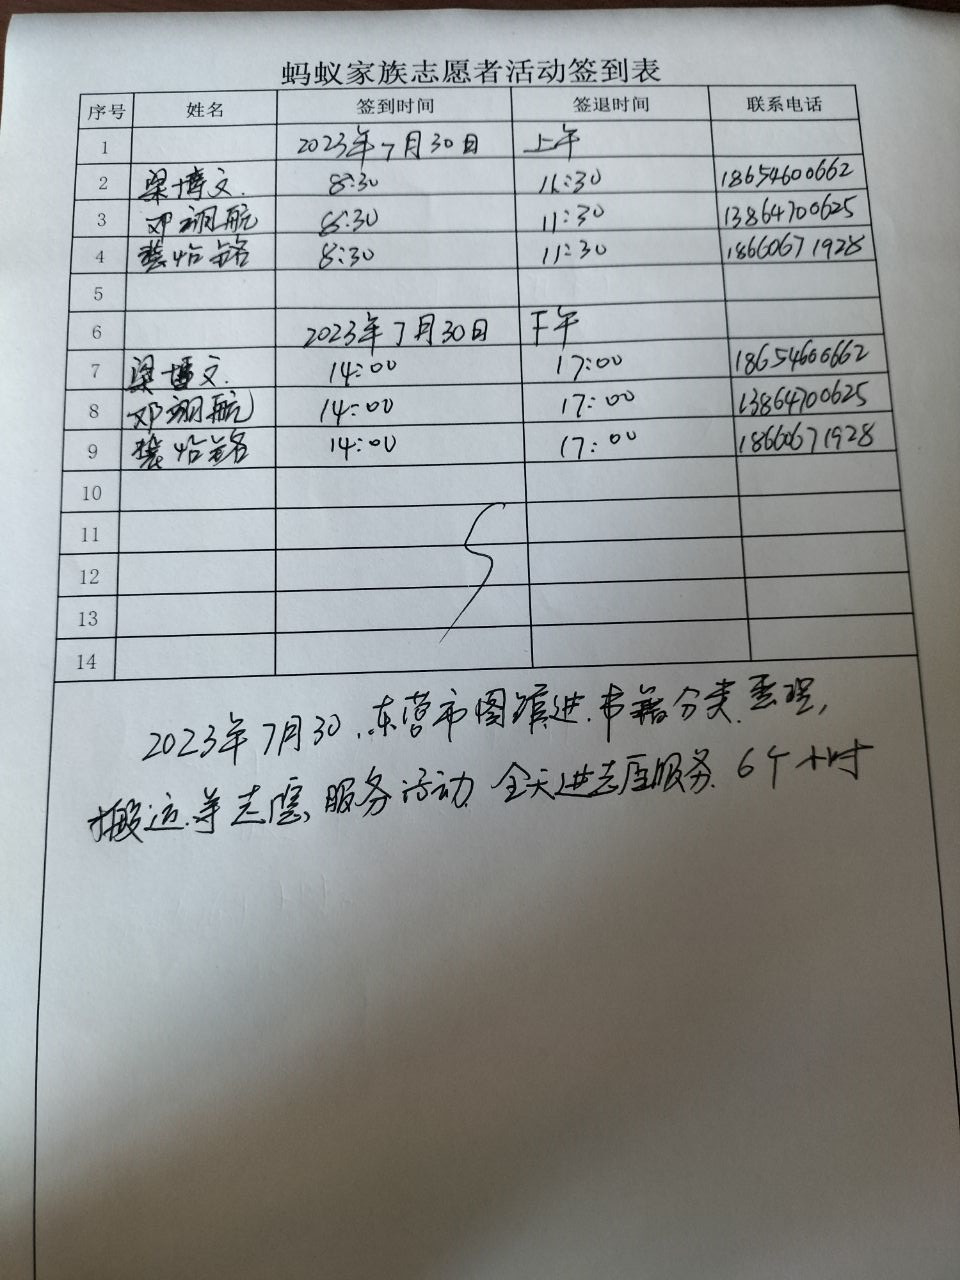 蚂蚁家族志愿者活动签到表
序号 姓名 签到时间 签退时间 联系电话
1 2023年7月30日 上午
2 梁博文. 8:30 11:30 18654600662
3 邓翊航 8:30 11:30 13864700625
4 怡铭 8:30 11:30 18660671928
5
6 2023年7月30日 下午
7 梁博文. 14:00 17:00 18654600662
8 邓翊航 14:00 17:00 13864700625
9 怡铭 14:00 17:00 18660671928
10
11
12
13
14
2023年7月30,东营市图馆进.书籍分类.整理,
搬运.等志愿,服务活动.全天进志愿服务.6个小时